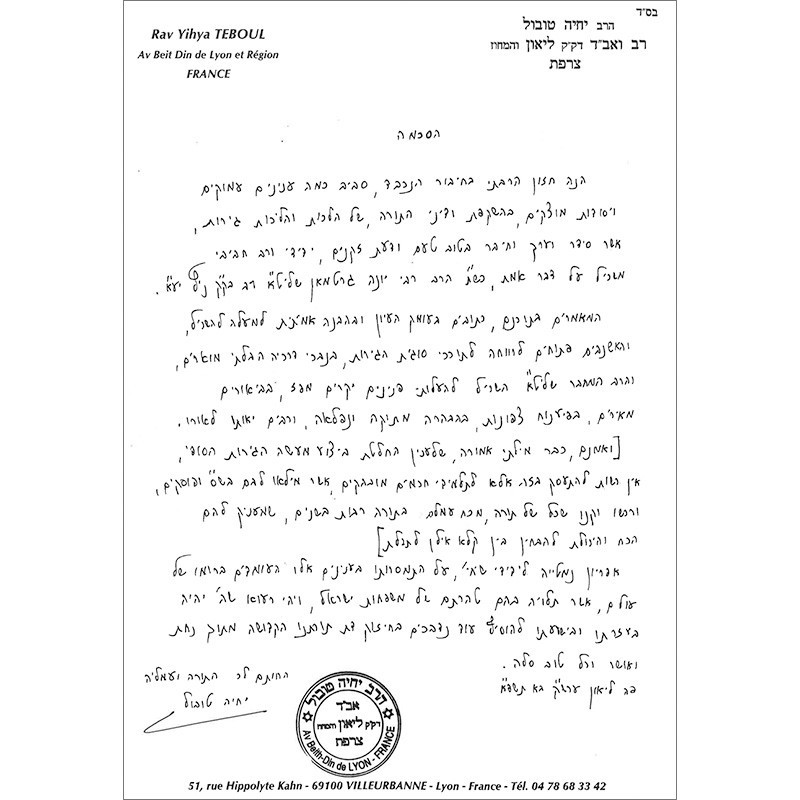 בס"ד
Rav Yihya TEBOUL
Av Beit Din de Lyon et Région
FRANCE
הרב יחיה טובול
רב ואב"ד דק"ק ליאון והמחוז
צרפת
הסכמה
הנה חזון הרבתי בחיבור הנכבד, סביב כמה ענינים עמוקים
ויסודות מוצקים, בהשקפת ודיני התורה, של הלכות והליכות גירות,
אשר סידר וערך וחיבר בטוב טעם ודעת זקנים, ידידי ורב חביבי
משכיל על דבר אמת, כש"ת הרב רבי יונה גרטמאן שליט"א רב בק"ק ניס יע"א.
המאמרים בתוכנם, כתובים בעומק העיון ובהבנה אמיתית למעלה להשכיל,
והאשנבים פתוחים לרווחה לתוככי סוגית הגירות, בנבכי דרכיה הבלתי מוארים,
והרב המחבר שליט"א השכיל להעלות פנינים יקרים מפז, בביאורים
מאירים, בפיענוח צפונות, בהבהרה מתוקה ונפלאה, ורבים יאותו לאורו.
[ואמנם, כבר מילתי אמורה, שלענין החלטת ביצוע מעשה הגירות הסופי,
אין רשות להתעסק בזה אלא לתלמידי חכמים מובהקים, אשר מילאו לבם בש"ס ופוסקים,
ורכשו וקנו שכל של תורה, מכח עמלם בתורה רבות בשנים, שמעניק להם
הכח והיכולת להבחין בין קלא אילן לתכלת]
אפריון נמטייה לידידי שיחי', על התמסרותו בענינים אלו העומדים ברומו של
עולם, אשר תלויה בהם טהרתם של משפחות ישראל, ויהי רעוא שה' יהיה
בעזרתו ובישועתו להוסיף עוד נדבכים בחיזוק דת תורתנו הקדושה מתוך נחת
ואושר וכל טוב סלה.
פה ליאון עש"ק בא תשפ"א
החותם לכ' התורה ועמליה
יחיה טובול
הרב יחיה טובול
אב"ד
דק"ק ליאון והמחוז
צרפת
Av Beith-Din de LYON - FRANCE
51, rue Hippolyte Kahn - 69100 VILLEURBANNE - Lyon - France - Tél. 04 78 68 33 42